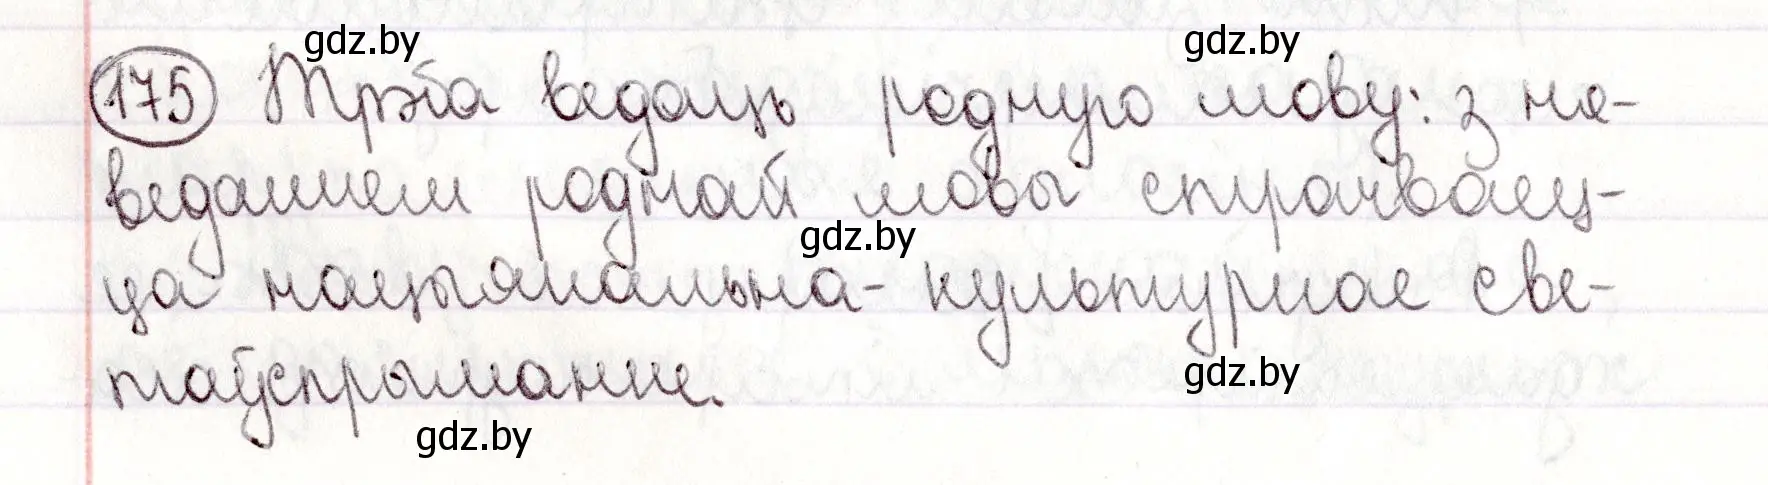 gdz.by gdz.by
175 Трэба ведаць родную мову: з не-
веданнем роднай мовы страчваец-
gdz.by
ца нацыянальна-культурнае све-
таўспрыманне.
gdz.by
gdz.by